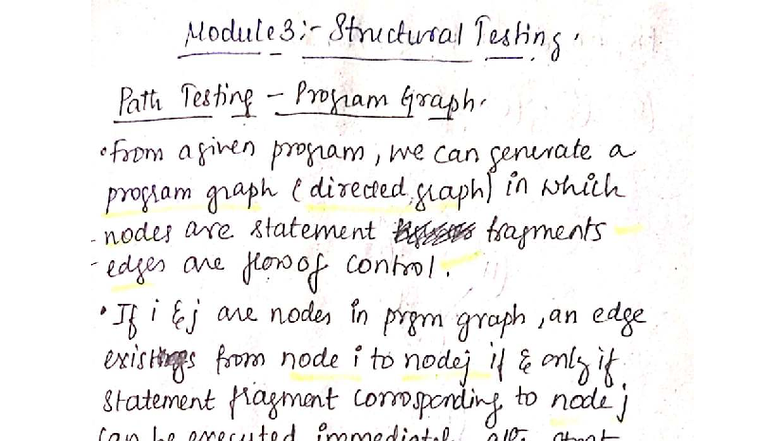 Module3:- Structural Testing.
Path Testing - Program Graph.
• from a given program, we can generate a
program graph (directed graph) in which
- nodes are statement fragments
- edges are flow of control.
• If i & j are nodes in prgm graph, an edge
exists from node i to node j if & only if
statement fragment corrosponding to node j
can be executed immediatel